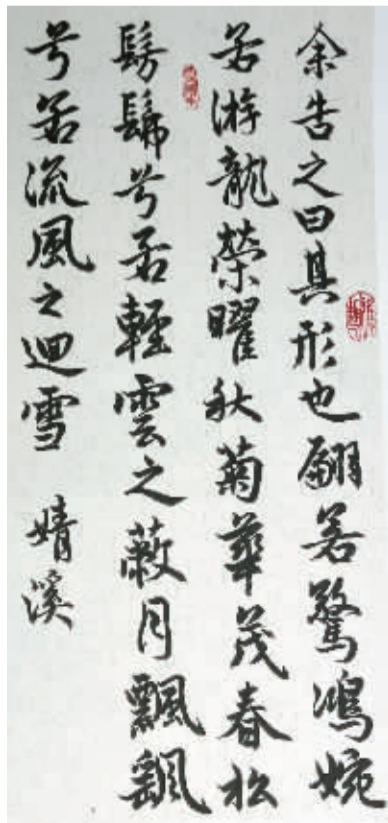 余告之曰其形也翩若驚鴻婉
若游龍榮曜秋菊華茂春松
髣髴兮若輕雲之蔽月飄颻
兮若流風之迴雪 婧溪